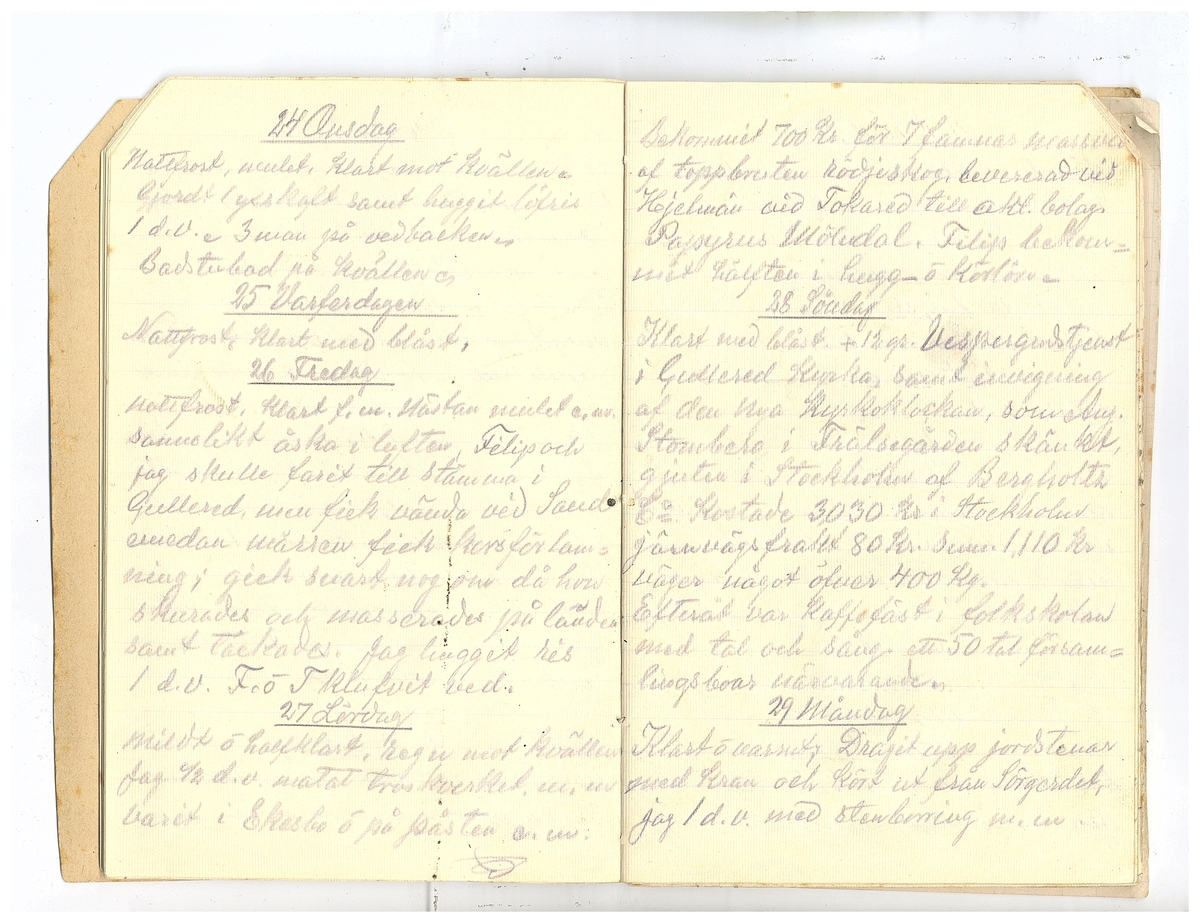 24 Onsdag
Nattfrost, mulet, Klart mot Kvällen.
Gjordt 1 yxskaft samt huggit löfris
1 d.v. 3 man på vedbacken.
Badstubad på Kvällen
25 Varferdagen
Nattfrost, Klart med blåst,
26 Fredag
Nattfrost, Klart f.m. Nästan mulet e.m.
sannolikt åska i luften, Filip och
jag skulle farit till stämma i
Gullered, men fick vända vid Sand
emedan märren fick Korsförlam=
ning; gick snart nog om då hon
skurades och masserades på länden
samt täckades. Jag huggit ris
1 d.v. F. ö T Klufvit ved.
27 Lördag
Mildt ö halfklart, regn mot Kvällen
Jag 1/2 d.v. matat tröskverket, m.m
varit i Ekesbo ö på påsten e.m.
Bekommit 700 Kr. för 7 famnar massved
af toppbruten rödjeskog, levererad vid
Hjelmån vid Tokared till akt. bolag.
Papyrus Mölndal. Filip bekom=
mit hälften i hugg- ö körlön
28 Söndag
Klart med blåst. +12 gr. Vespergudstjenst
i Gullered Kyrka, samt invigning
af den nya Kyrkoklockan, som Aug.
Stomberg i Frälsegården skänket,
gjuten i Stockholm af Bergholtz
Co. Kostade 3030 Kr i Stockholm
järnvägsfrakt 80 Kr. Sum. 1,110 Kr
väger något öfver 400 Kg.
Efteråt var Kaffefäst i folkskolan
med tal och sång. ett 50 tal försam=
lingsboar närvarande.
29 Måndag
Klart ö varmt, Dragit upp jordstenar
med Kran och Kört ut från Sörgerdet,
jag 1 d.v. med stenborring m.m